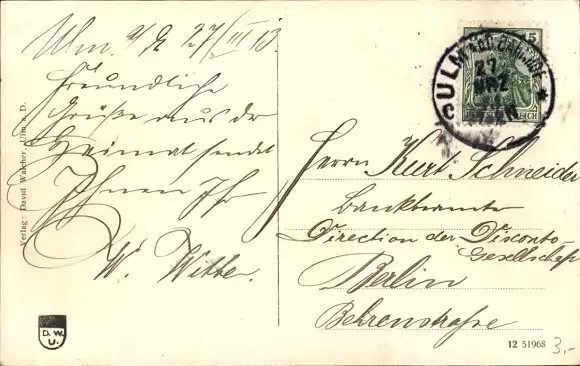 Ulm a/D. 27/III 13.
Freundliche
Grüße aus der
Heimat sendet
Ihnen Ihr
W. Witte.
Verlag: David Walcher, Ulm a. D.
D.W.
U.
ULM
27
MRZ
5
REICH
Herrn Kurt Schneider
Bankbeamter
Direction der Disconto
Gesellschaft
Berlin
Behrenstraße
12 51968
3,-